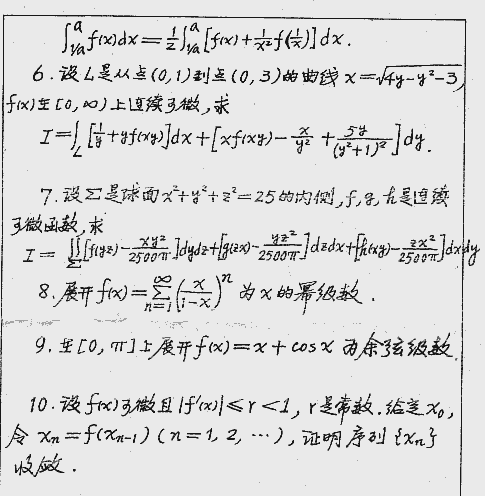 ∫_{1/a}^{a} f(x)dx = 1/2 ∫_{1/a}^{a} [f(x) + 1/x² f(1/x)] dx.
6. 设 L 是从点(0,1)到点(0,3)的曲线 x = √(4y-y²-3),
f(x)在[0,∞)上连续可微,求
I = ∫_L [1/y + yf(xy)]dx + [xf(xy) - x/y² + 5y/(y²+1)²]dy.
7. 设Σ是球面x²+y²+z²=25的内侧,f,g,h是连续
可微函数,求
I = ∬_Σ [f(yz) - xy²/2500π]dydz + [g(zx) - yz²/2500π]dzdx + [h(xy) - zx²/2500π]dxdy
8. 展开 f(x) = Σ_{n=1}^{∞} (x/(1-x))^n 为x的幂级数.
9. 在[0,π]上展开f(x)=x+cosx为余弦级数
10. 设f(x)可微且|f'(x)|≤r<1, r是常数.给定x₀,
令 x_n=f(x_{n-1}) (n=1,2,…),证明序列{x_n}
收敛.